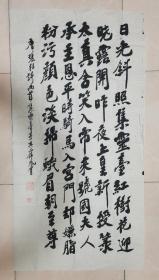 日光斜照集靈臺紅樹花迎
曉露開昨夜上皇新授籙
太真含笑入簾來虢國夫人
承主恩平明騎馬入宮門却嫌脂
粉污顏色淡掃蛾眉朝至尊
唐張祜詩兩首